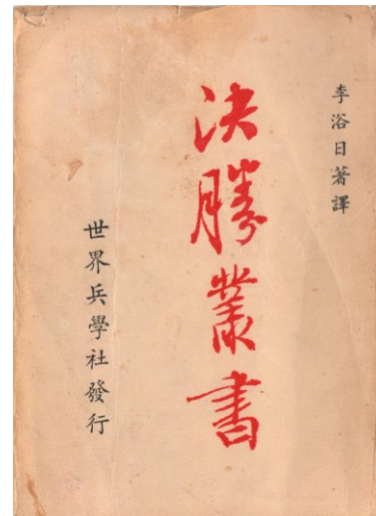 李浴日著譯
決勝叢書
世界兵學社發行